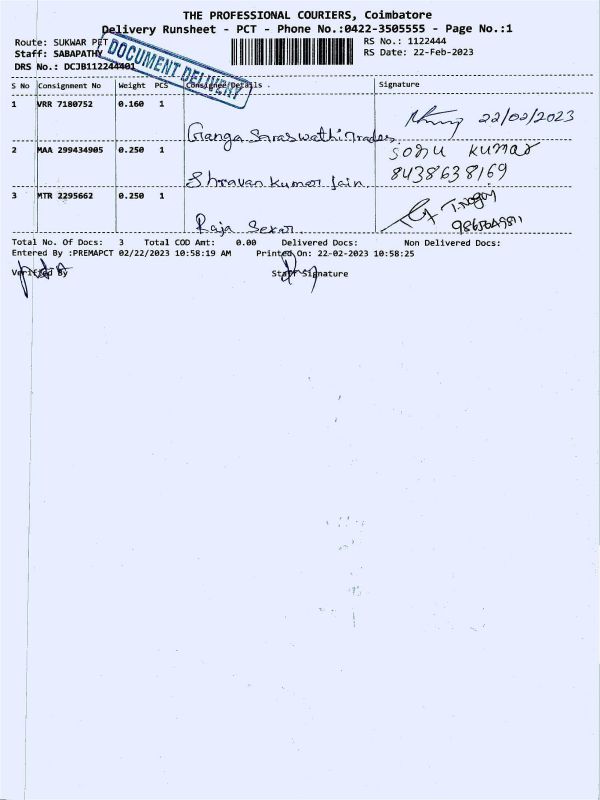 THE PROFESSIONAL COURIERS, Coimbatore
Delivery Runsheet - PCT - Phone No.:0422-3505555 - Page No.:1
Route: SUKWAR PET
RS No.: 1122444
Staff: SABAPATHY
RS Date: 22-Feb-2023
DRS No.: DCJB112244401
DOCUMENT DELIVERY
S No Consignment No Weight PCS Consignee Details . Signature
1 VRR 7180752 0.160 1
22/02/2023
Ganga Saraswathi Trades
2 MAA 299434905 0.250 1
sonu kumar
8438638169
Shravan kumar Jain
3 MTR 2295662 0.250 1
Raja Sekar
Total No. Of Docs: 3 Total COD Amt: 0.00 Delivered Docs: Non Delivered Docs:
Entered By :PREMAPCT 02/22/2023 10:58:19 AM Printed On: 22-02-2023 10:58:25
Verified By Staff Signature